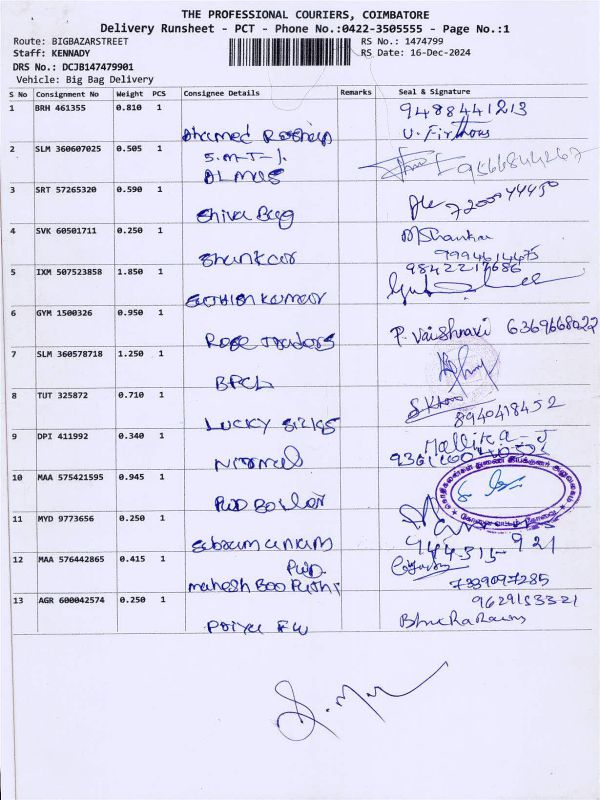 THE PROFESSIONAL COURIERS, COIMBATORE
Delivery Runsheet - PCT - Phone No.:0422-3505555 - Page No.:1
Route: BIGBAZARSTREET RS No.: 1474799
Staff: KENNADY RS Date: 16-Dec-2024
DRS No.: DCJB147479901
Vehicle: Big Bag Delivery
S No Consignment No Weight PCS Consignee Details Remarks Seal & Signature
1 BRH 461355 0.810 1 9488441213
U. Firthous
2 SLM 360607025 0.505 1 S.M.T. 9566844267
ALMAS
3 SRT 57265320 0.590 1
Shiva Bag
4 SVK 60501711 0.250 1 M Shankar
Shankar 9994614475
5 IXM 507523858 1.850 1
Sathish Kumar
6 GYM 1500326 0.950 1 P. Vaishnavi 6369668022
Rose Traders
7 SLM 360578718 1.250 1
BPCL
8 TUT 325872 0.710 1
LUCKY Silks 8940418452
9 DPI 411992 0.340 1 Mallika - J
Nirmal
10 MAA 575421595 0.945 1
11 MYD 9773656 0.250 1
12 MAA 576442865 0.415 1
mahesh 7339097285
13 AGR 600042574 0.250 1 9629153321
Priya